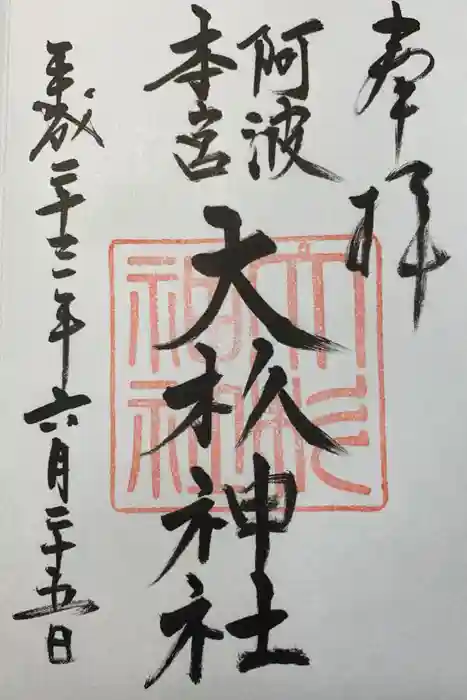 奉拝
阿波
本宮
大杦神社
平成二十三年六月二十五日
大杉
神社